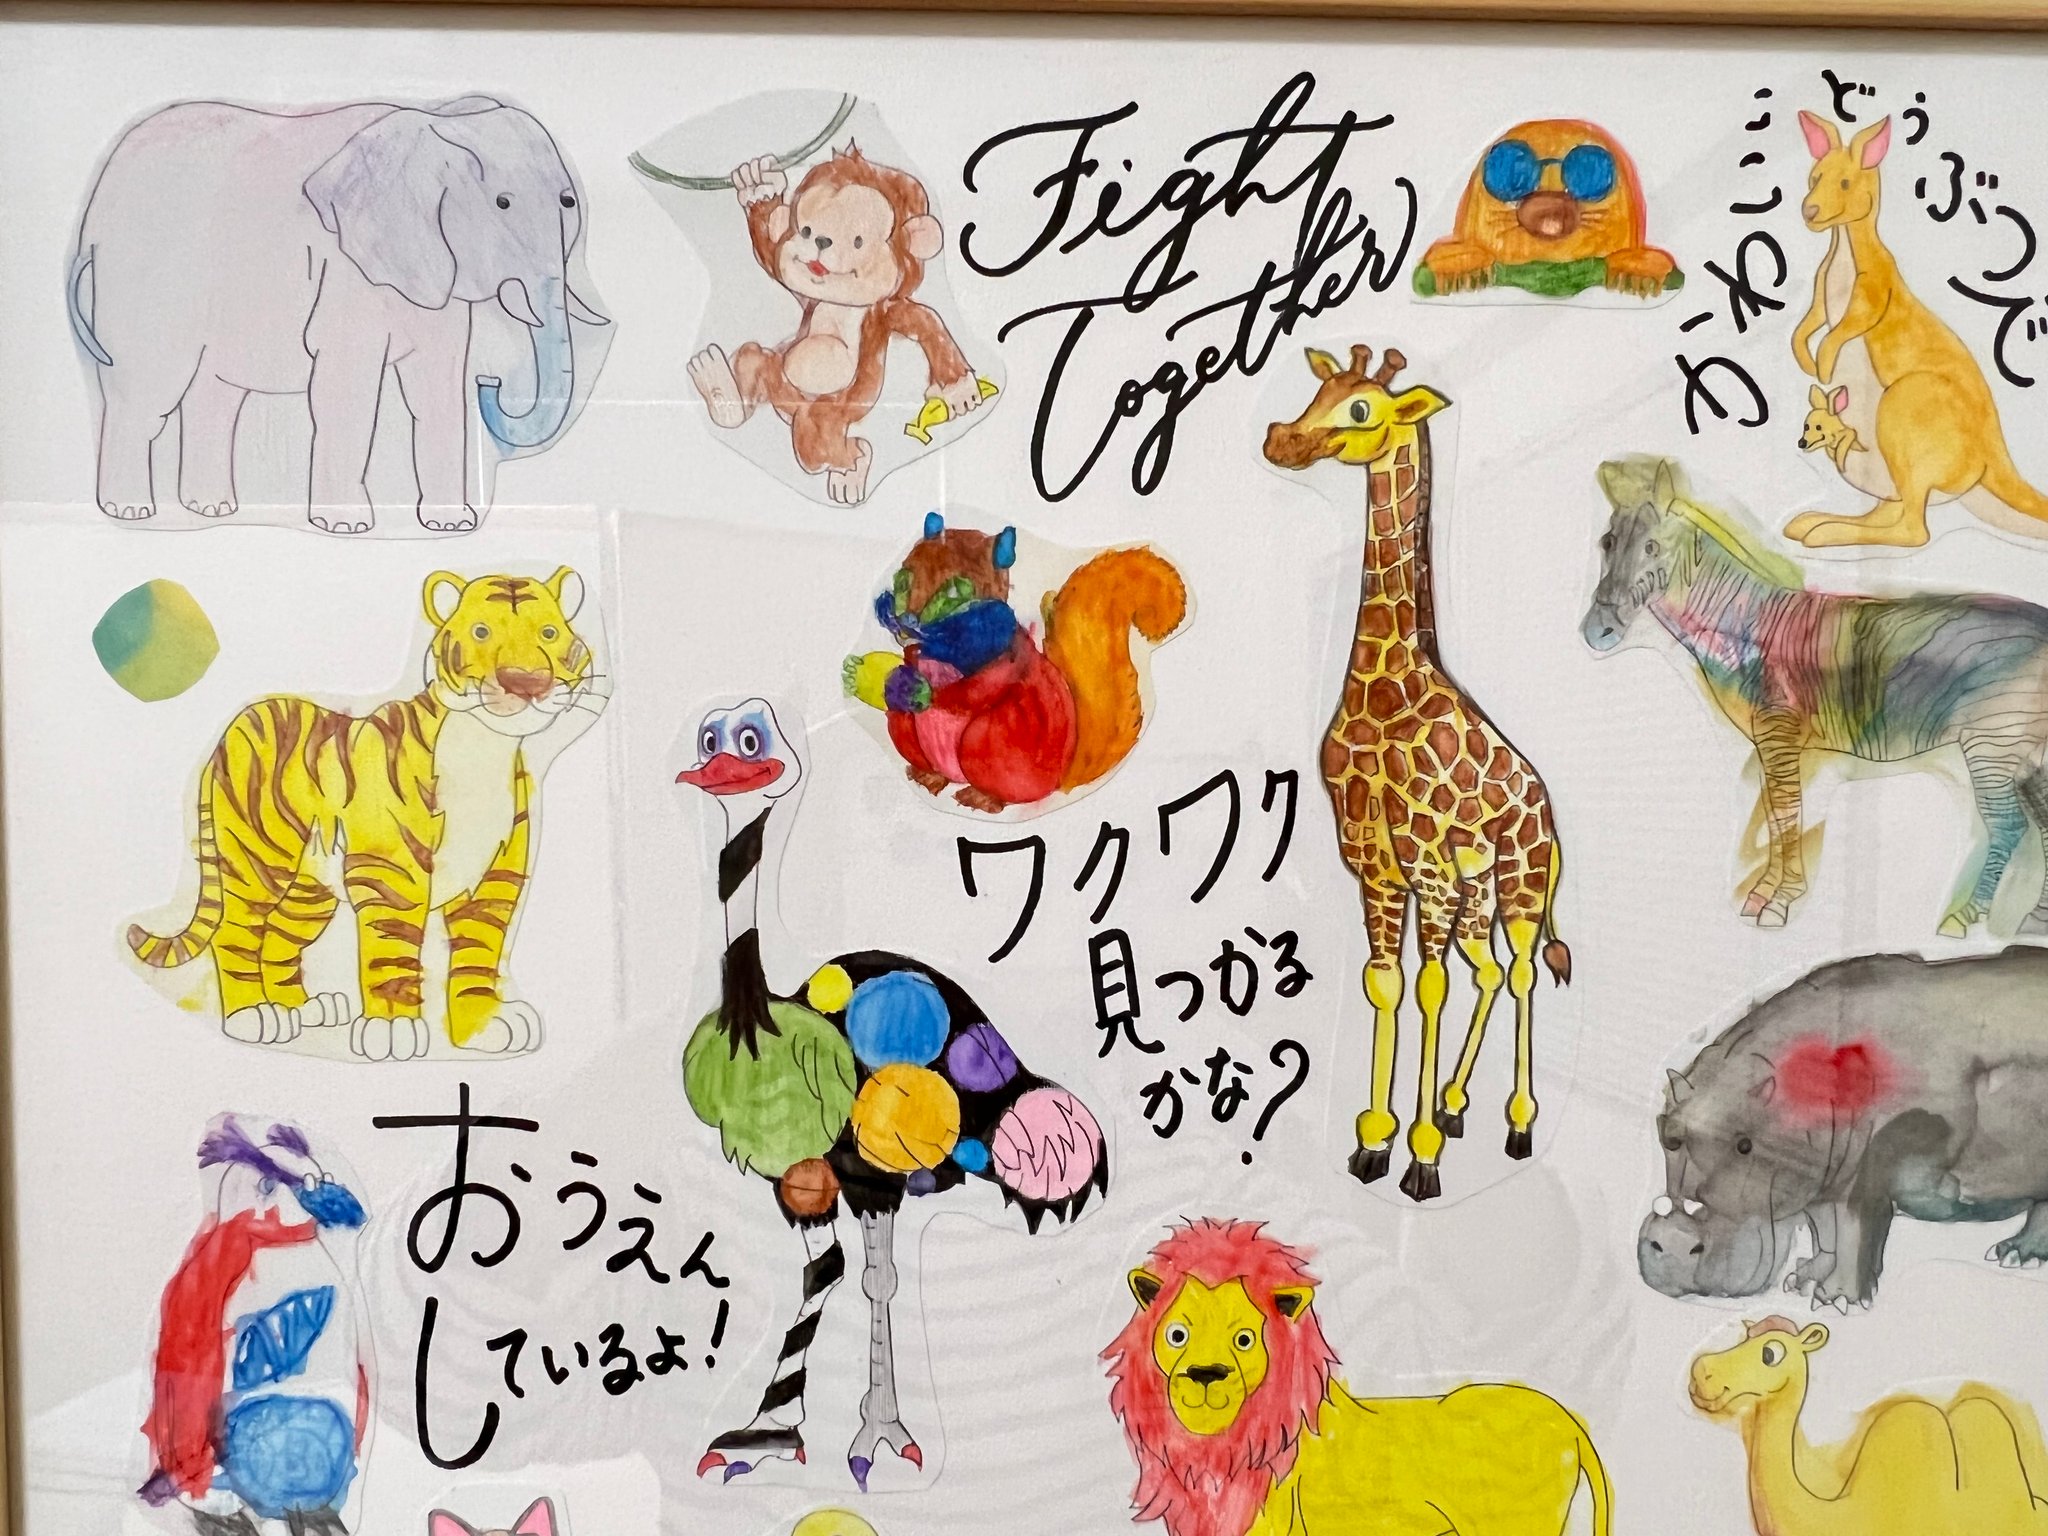 Fight
Together
かわいい
どうぶつで
ワクワク
見つかる
かな?
おうえん
しているよ!